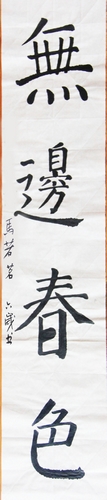 無邊春色
馬若茗 六歲书